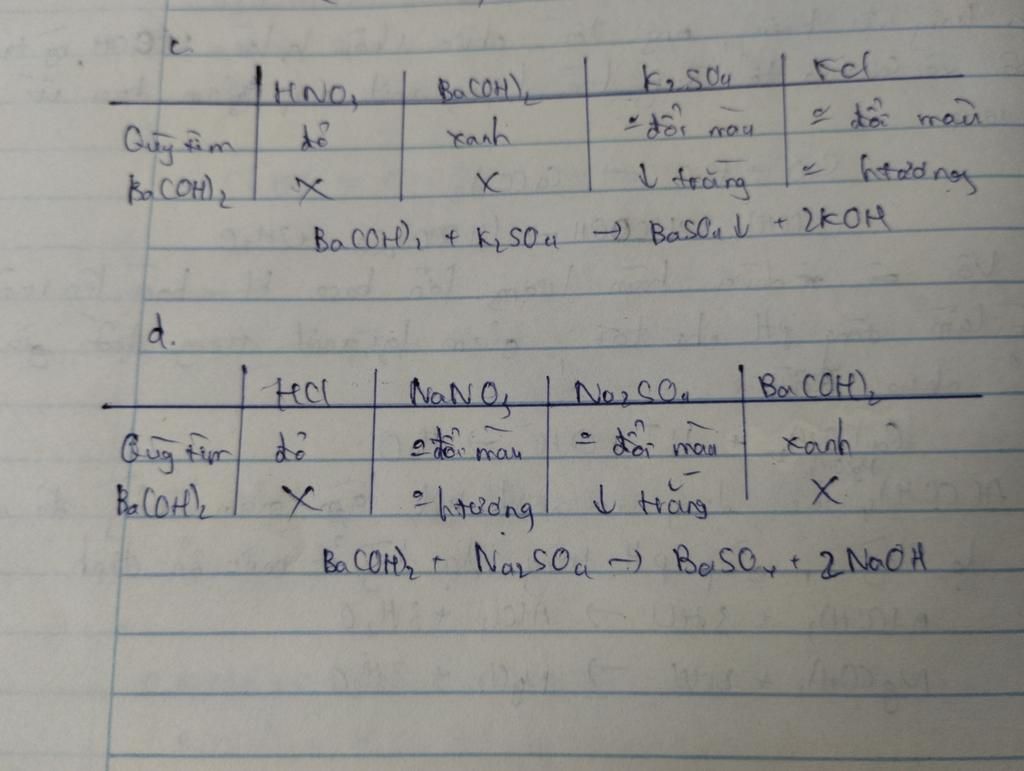 c.
HNO₃ Ba(OH)₂ K₂SO₄ KCl
Quỳ tím đỏ xanh ⁰ đổi màu ⁰ đổi màu
Ba(OH)₂ X X ↓ trắng ⁰ htượng
Ba(OH)₂ + K₂SO₄ → BaSO₄↓ + 2KOH
d.
HCl NaNO₃ Na₂SO₄ Ba(OH)₂
Quỳ tím đỏ ⁰ đổi màu ⁰ đổi màu xanh
Ba(OH)₂ X ⁰ htượng ↓ trắng X
Ba(OH)₂ + Na₂SO₄ → BaSO₄ + 2NaOH